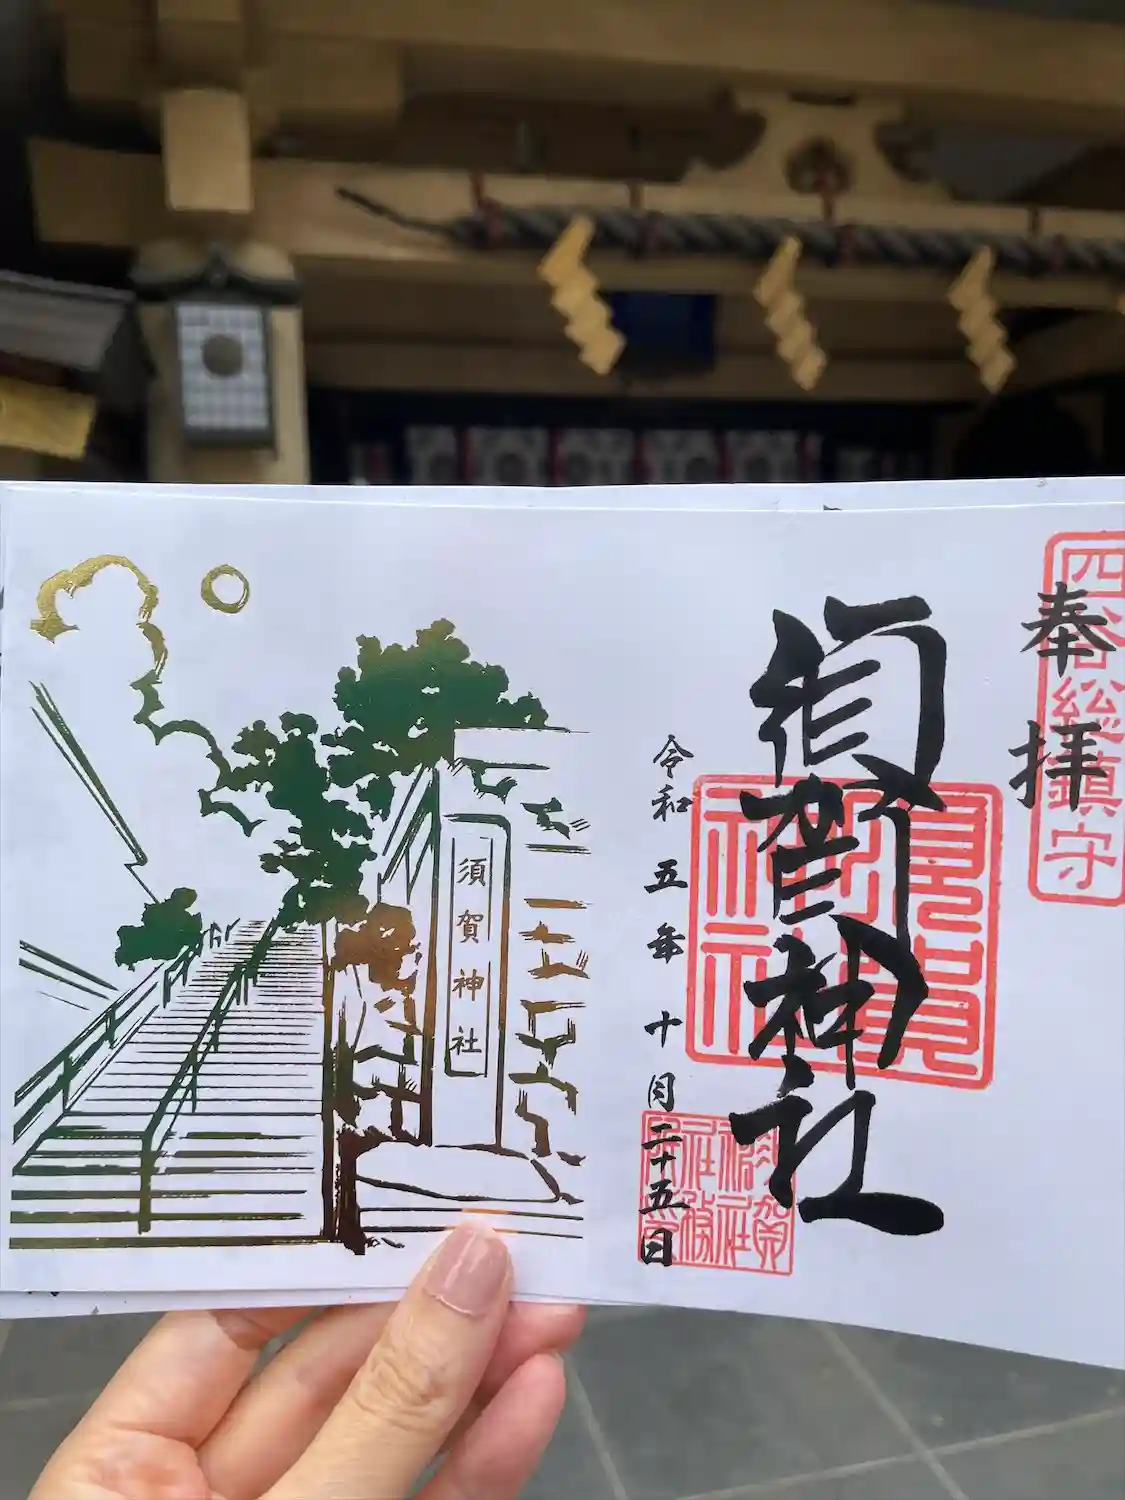 四谷総鎮守
奉拝
須賀神社
須賀神社
令和五年十月二十五日
須賀神社